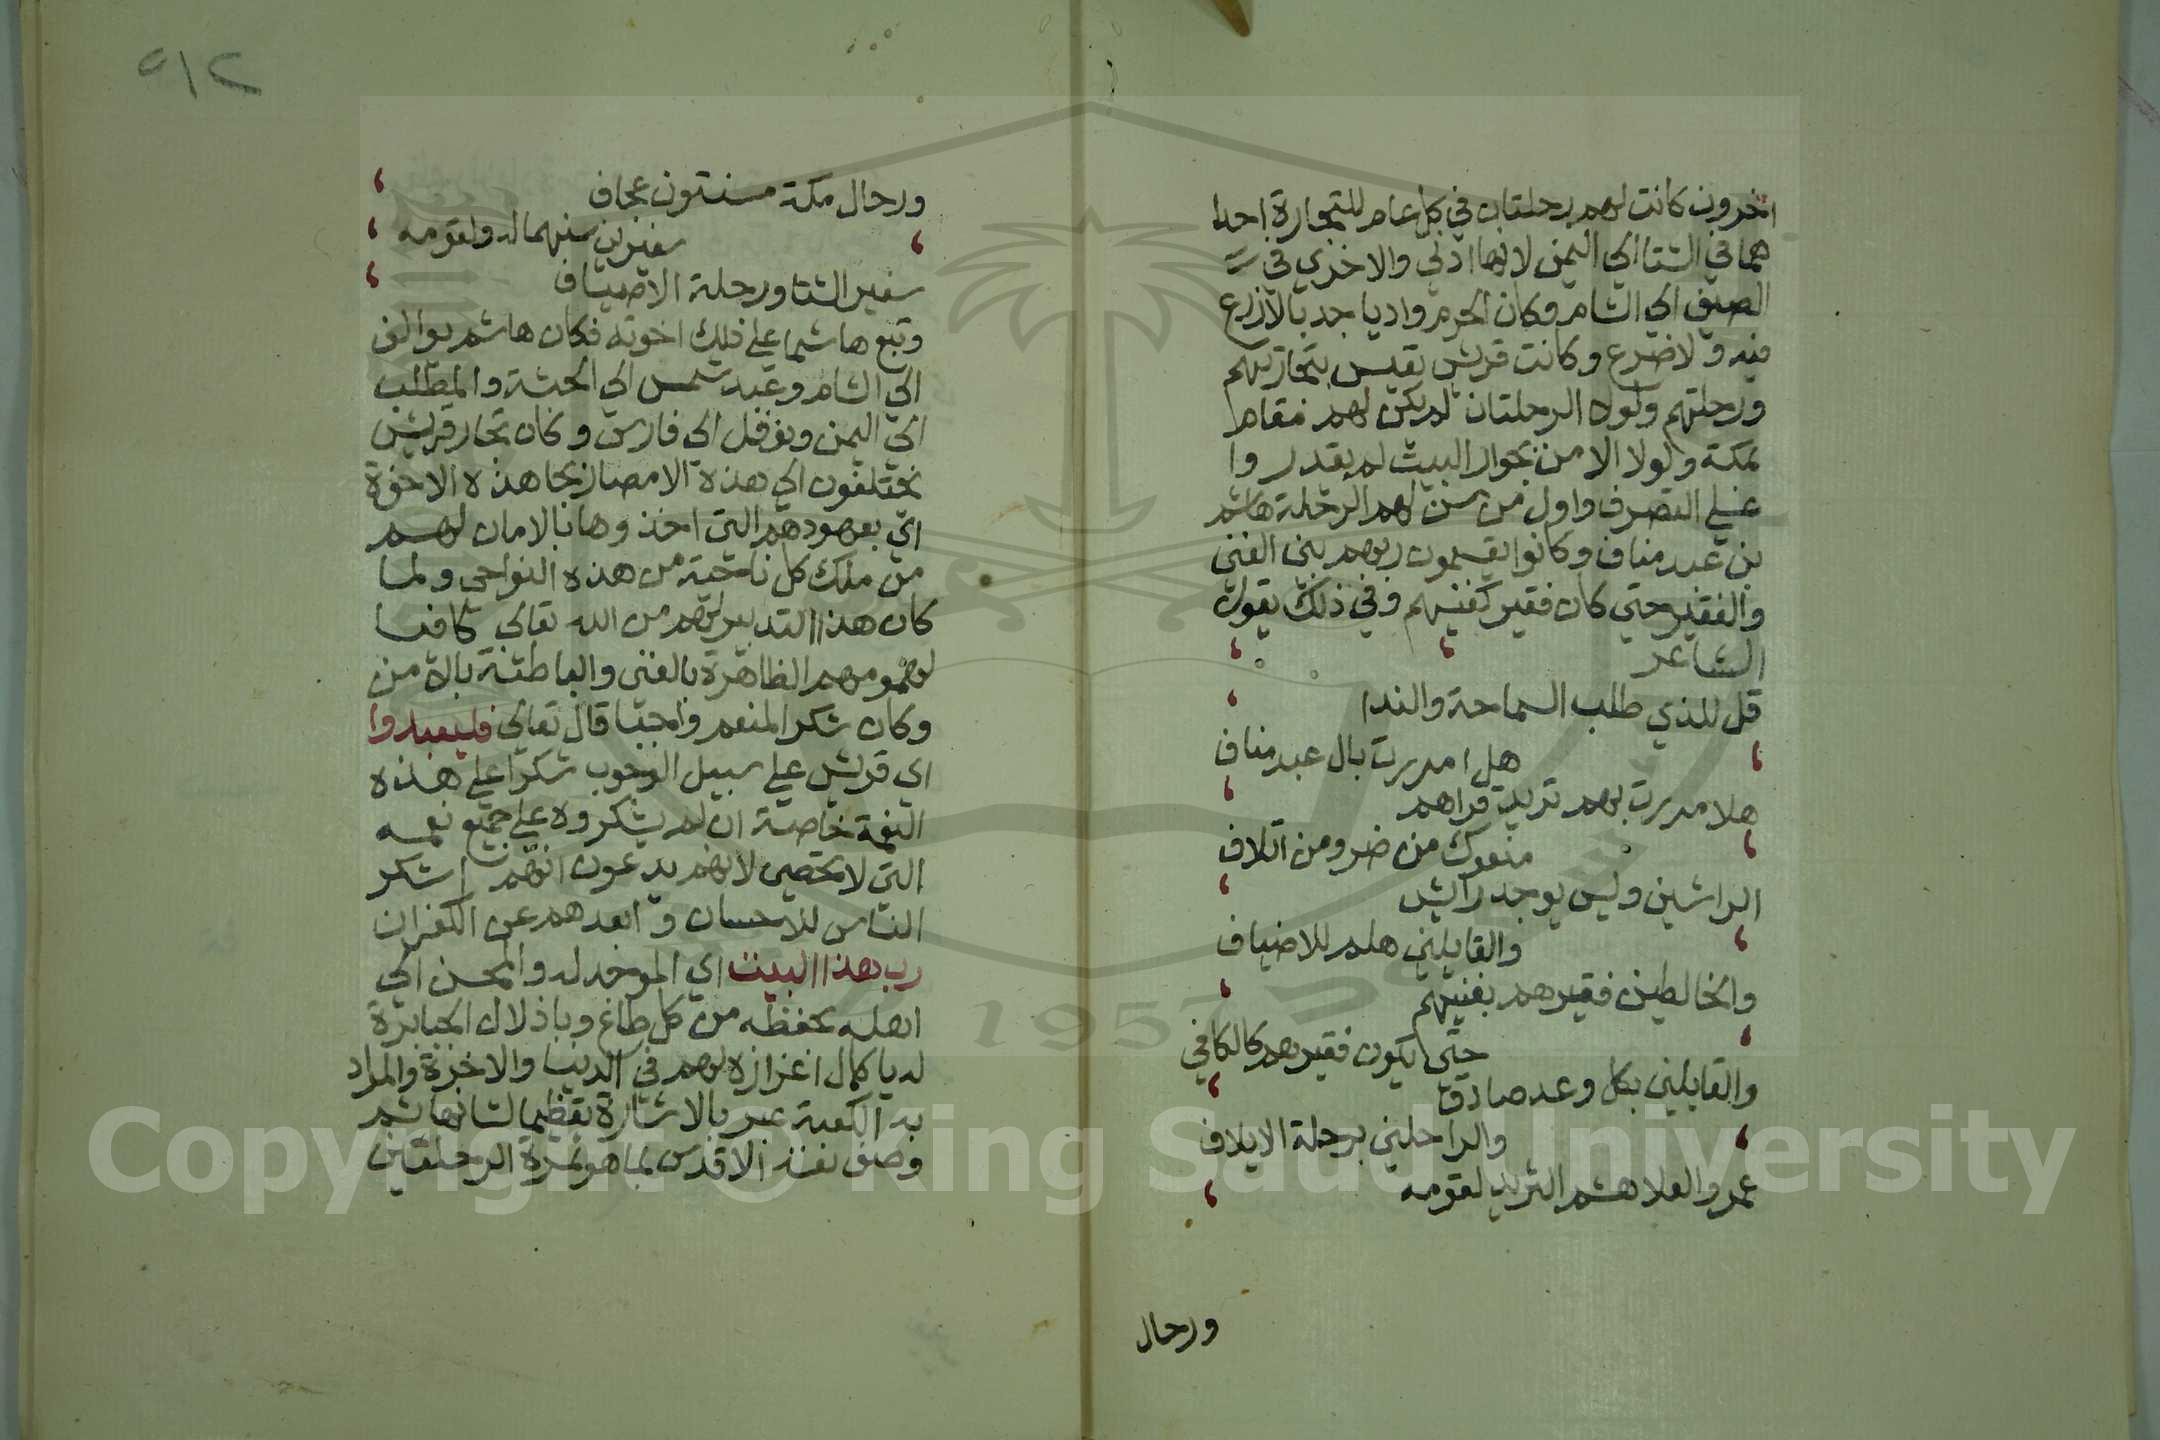 اخرون كانت لهم رحلتان في كل عام للتجارة احدا
هما في الشتا الي اليمن لانها ادني والاخري في
الصيف الي الشام وكان الحرم واديا جدبا لازرع
فيه ولا ضرع وكانت قريش تعيس بتجارتهم
ورحلتهم ولولا الرحلتان لم يكن لهم مقام
بمكة ولولا الامن بجوار البيت لم يقدروا
علي التصرف واول من سن لهم الرحلة هاشم
بن عبد مناف وكانوا يقسمون ربحهم بين الغني
والفقير حتي كان فقيرهم كغنيهم وفي ذلك يقول
الشاعر
قل للذي طلب السماحة والندا
هل امررت بال عبد مناف
هلا مررت بهم تريد قراهم
منعوك من ضر ومن اتلاف
الراشين وليس يوجد رايش
والقايلين هلم للاضياف
والخالطين فقيرهم بغنيهم
حتي يكون فقيرهم كالكافي
والقايلين بكل وعد صادق
والراحلين برحلة الايلاف
عمرو العلا هشم الثريد لقومه
ورحال
٥١٢
ورحال مكة مسنتون عجاف
سفرين سنهما له ولقومه
سفر الشتا ورحلة الاصياف
وتبع هاشما علي ذلك اخوته فكان هاشم يوالف
الي الشام وعبد شمس الي الحبشة والمطلب
الي اليمن ونوفل الي فارس وكان تجار قريش
يختلفون الي هذه الامصار بجاه هذه الاخوة
اي بعهودهم التي اخذوها بالامان لهم
من ملك كل ناحية من هذه النواحي ولما
كان هذا التدبير لهم من الله تعالي كافيا
لهمومهم الظاهرة بالغني والباطنة بالامن
وكان شكر المنعم واجبا قال تعالي فليعبدوا
اي قريش علي سبيل الوجوب شكرا علي هذه
النعمة خاصة ان لم يشكروه علي جميع نعمه
التي لا تحصي لانهم يدعون انهم اشكر
الناس للاحسان وابعدهم عن الكفران
رب هذا البيت اي الموجد له والمحسن الي
اهله بحفظه من كل طاغ وباذلال الجبابرة
له باكمال اعزازه لهم في الدنيا والاخرة والمراد
به الكعبة عبر بالاشارة تعظيما لشانها ثم
وصف نفسه الاقدس بما هو ثمرة الرحلتين
Copyright © King Saud University
1957